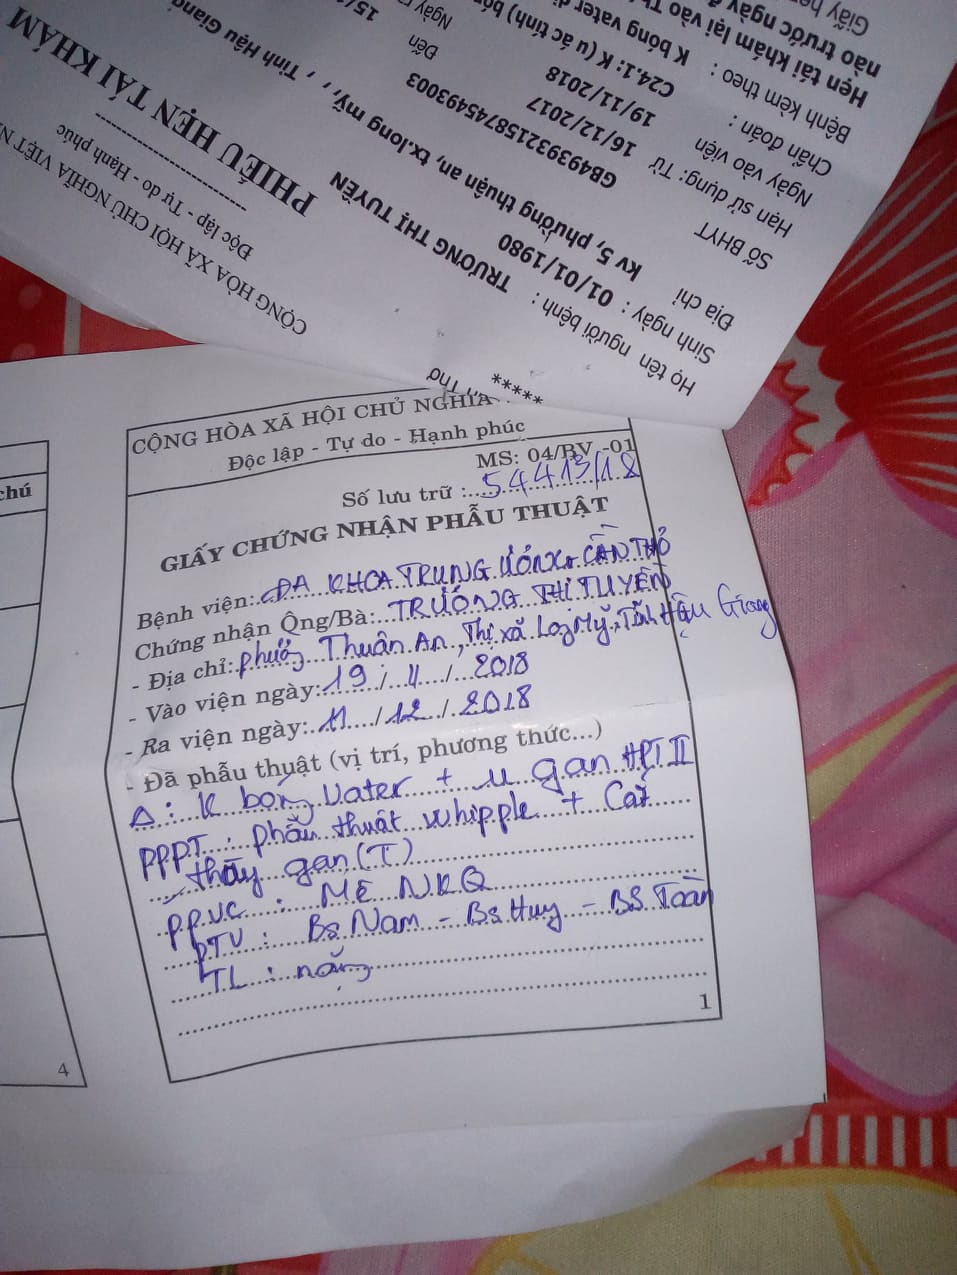 CỘNG HÒA XÃ HỘI CHỦ NGHĨA VIỆT N
Độc lập - Tự do - Hạnh phúc
PHIẾU HẸN TÁI KHÁM
Họ tên người bệnh : TRƯƠNG THỊ TUYỀN
Sinh ngày : 01/01/1980
Địa chỉ Kv 5, phường thuận an, tx.long mỹ, , , Tỉnh Hậu Giang
Số BHYT GB4939321587454930​03
Hạn sử dụng: Từ 16/12/2017 Đến 15/
Ngày vào viện 19/11/2018 Ngày
Chẩn đoán : C24.1: K (u ác tính) bó
Bệnh kèm theo : K bóng vater
Hẹn tái khám lại vào
nào trước ngày
Giấy hẹ
*****
n Thơ
CỘNG HÒA XÃ HỘI CHỦ NGHĨA
Độc lập - Tự do - Hạnh phúc
MS: 04/BV -01
Số lưu trữ : 54413/18
GIẤY CHỨNG NHẬN PHẪU THUẬT
Bệnh viện: ĐA KHOA TRUNG ƯƠNG CẦN THƠ
Chứng nhận Ông/Bà: TRƯƠNG THỊ TUYỀN
- Địa chỉ: phường Thuận An, Thị xã Long Mỹ, Tỉnh Hậu Giang
- Vào viện ngày: 19 / 11 / 2018
- Ra viện ngày: 11 / 12 / 2018
- Đã phẫu thuật (vị trí, phương thức...)
Δ: K bóng Vater + u gan HPT II
PPPT : phẫu thuật whipple + Cắt
thùy gan (T)
PPVC : ME NKQ
PTV : Bs Nam - Bs Huy - BS Toàn
TL : nặng
1
chú
4